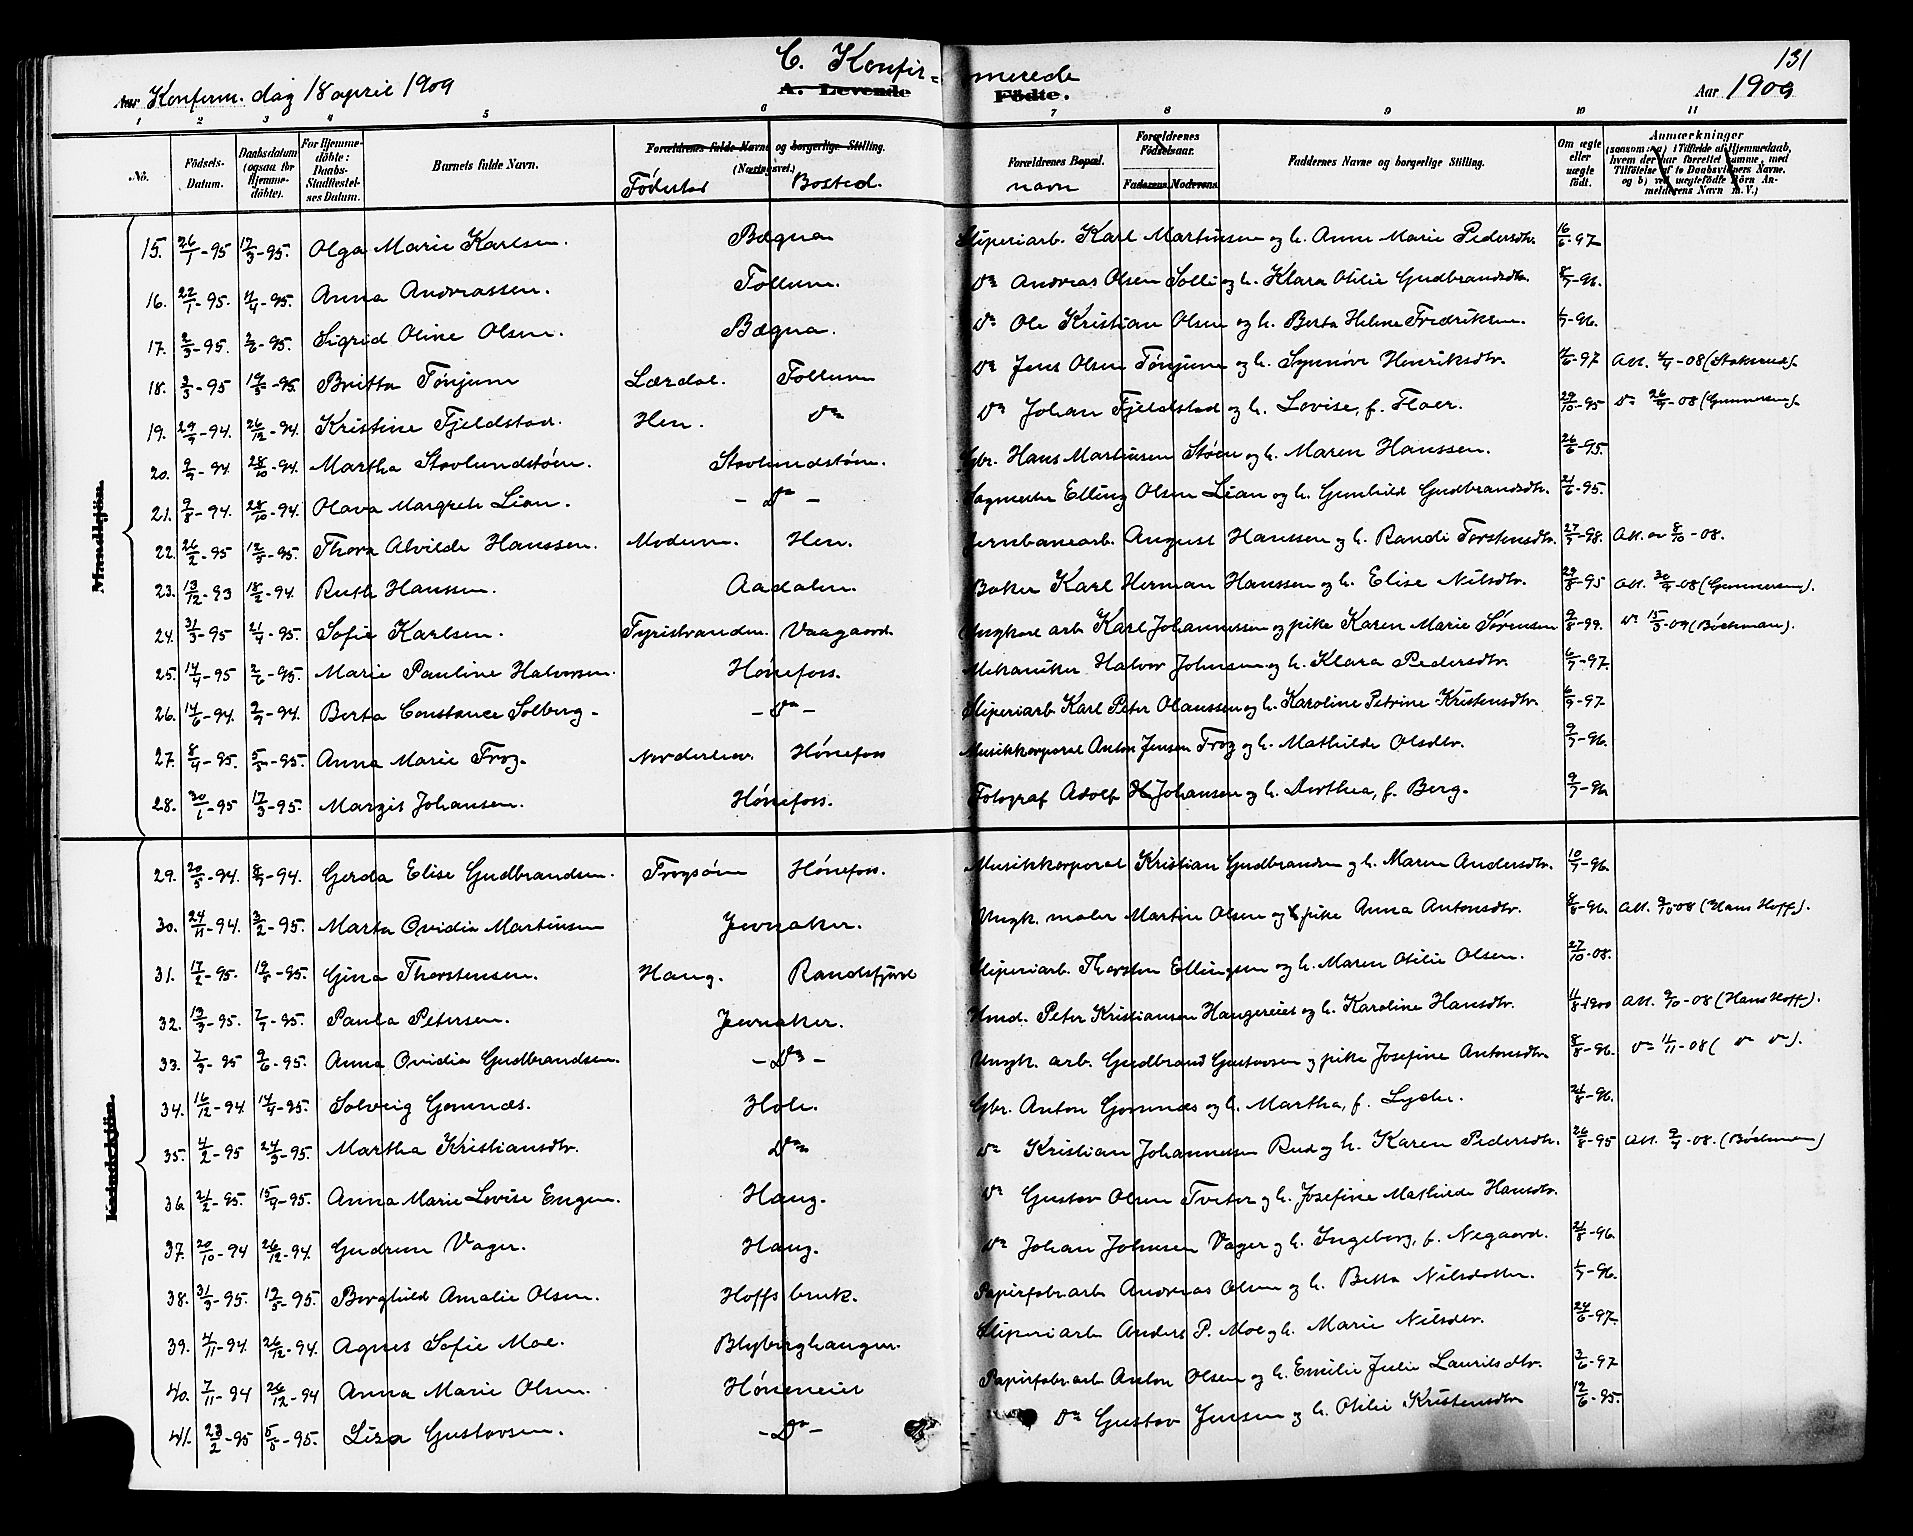 131
C. Konfirmerede
A. Levende Fødte.
Aar Konferm. dag 18 april 1909
Aar 1909
1 2 3 4 5 6 7 8 9 10 11
No. Fødsels-Datum. Daabsdatum (ogsaa for Hjemmedøbte). For Hjemmedøbte: Daabs-Stadfæstelses Datum. Barnets fulde Navn. Forældrenes fulde Navne og borgerlige Stilling. (Nattogsvei.) Fødested Bosted. Forældrenes Bopæl. navn Forældrenes Fødselsaar. Faderens Moderens Faddernes Navne og borgerlige Stilling. Om ægte eller uægte født. Anmærkninger
Mandkjön.
15. 26/1-95 17/3-95. Olga Marie Karlsen. Bægna Sliperiarb. Karl Martinsen og h. Anne Marie Pedersdtr. 16/6-97
16. 22/1-95. 4/4-95. Anna Andreassen. Follum. do Andreas Olsen Solli og h. Klara Otilie Gudbrandsdtr. 8/7-96.
17. 2/3-95. 2/6-95. Sigrid Oline Olsen. Bægna. do Ole Kristian Olsen og h. Berta Helene Fredriksen. 1/7-96.
18. 3/3-95 19/5-95. Britta Tønjum Lærdal. Follum do Jens Olsen Tønjum og h. Synnøve Henriksdtr. 4/6-97 Att. 4/4-08 (Stoksrud).
19. 29/9-94. 26/12-94. Kristine Fjeldstad. Hen. do do Johan Fjeldstad og h. Lovise, f. Floer. 29/10-95 do 26/9-08 (Gunnersen).
20. 9/9-94 28/10-94. Martha Stovlundstøen. Stovlundstøen. Gbr. Hans Martinsen Støen og h. Maren Hanssen. 26/6-95.
21. 9/8-94. 28/10-94. Olava Margrete Lian. - Do - Sagmester Elling Olsen Lian og h. Gunhild Gudbrandsdtr. 21/6-95.
22. 26/2-95 12/5-95. Thora Alvilde Hanssen. Modum. Hen. Jernbanearb. August Hanssen og h. Randi Torstensdtr. 27/7-98. Att. av 8/10-08.
23. 13/12-93 18/2-94. Ruth Hanssen. Aadalen. Baker Karl Herman Hanssen og h. Elise Nilsdtr. 29/8-95 Att. 30/9-08 (Gunnersen).
24. 31/3-95 21/4-95. Sofie Karlsen. Tyristranden. Vaagaard Ungkarl arb. Karl Johannessen og pike Karen Marie Sørensen 9/8-99. do 15/3-09 (Böckman).
25. 14/4-95 2/6-95. Marie Pauline Halvorsen. Hönefoss. Mekaniker Halvor Johnsen og h. Klara Pedersdtr. 6/7-97.
26. 14/6-94. 2/9-94. Berta Constance Solberg. - Do - Sliperiarb. Karl Peter Olaussen og h. Karoline Petrine Kristensdtr. 6/9-97
27. 8/4-95. 5/5-95. Anna Marie Frog. Norderhov. Hönefoss Musikkorporal Anton Jensen Frog og h. Mathilde Olsdtr. 9/7-96.
28. 30/1-95 17/3-95. Margit Johansen. Hönefoss. Fotograf Adolf Johansen og h. Dorthea, f. Berg. 9/7-96.
Kvindekjön.
29. 20/5-94. 8/7-94. Gerda Elise Gudbrandsen. Frogsøen Hönefoss. Musikkorporal Kristian Gudbrandsen og h. Maren Andersdtr. 10/7-96.
30. 24/11-94. 3/2-95. Marta Ovidia Martinsen Jevnaker. Ungk. maler Martin Olsen og pike Anna Antonsdtr. 8/8-96. Att. 9/10-08 (Hans Hoff).
31. 17/2-95. 19/5-95. Gina Thorstensen. Haug. Randsfjord Sliperiarb. Thorsten Ellingsen og h. Maren Otilie Olsen. 27/10-08.
32. 13/3-95. 7/7-95. Paula Petersen. Jevnaker. Hmd. Peter Kristiansen Haugereies og h. Karoline Hansdtr. 11/8-1900 Att. 9/10-08 (Hans Hoff).
33. 7/3-95 9/6-95. Anna Ovidia Gudbrandsen. - Do - Ungk. arb. Gudbrand Gustavsen og pike Josefine Antonsdtr. 8/8-96. do 1/11-08 ( do do ).
34. 16/12-94. 14/4-95. Solveig Gomnæs. Hole. Gbr. Anton Gomnæs og h. Martha, f. Lyder. 21/8-96.
35. 4/2-95 24/3-95. Martha Kristiansdtr. Do do Kristian Johannessen Rud og h. Karen Pedersdtr. 26/8-95 Att. 9/4-08. (Böckman)
36. 21/2-95. 15/4-95. Anna Marie Lovise Engen. Haug. do Gustav Olsen Tveter og h. Josefine Mathilde Hansdtr.
37. 20/10-94 26/12-94. Gudrun Vager. Haug. do Johan Johnsen Vager og h. Ingeborg, f. Negaard. 21/8-96.
38. 31/3-95. 12/5-95. Borghild Amalie Olsen. Hoffs bruk. Papirfabr.arb. Andreas Olsen og h. Betta Nilsdatter. 1/7-96.
39. 4/11-94. 26/12-94. Agnes Sofie Moe. Blyberghaugen. Sliperiarb. Anders P. Moe og h. Marie Nilsdtr. 24/6-97.
40. 7/11-94 26/12-94 Anna Marie Olsen. Hönemeiet Papirfabr.arb. Anton Olsen og h. Emilie Julie Lauritsdtr. 3/6-97
41. 23/2-95 5/5-95. Liza Gustavsen. - Do - do Gustav Jensen og h. Otilie Kristensdtr 12/6-95.